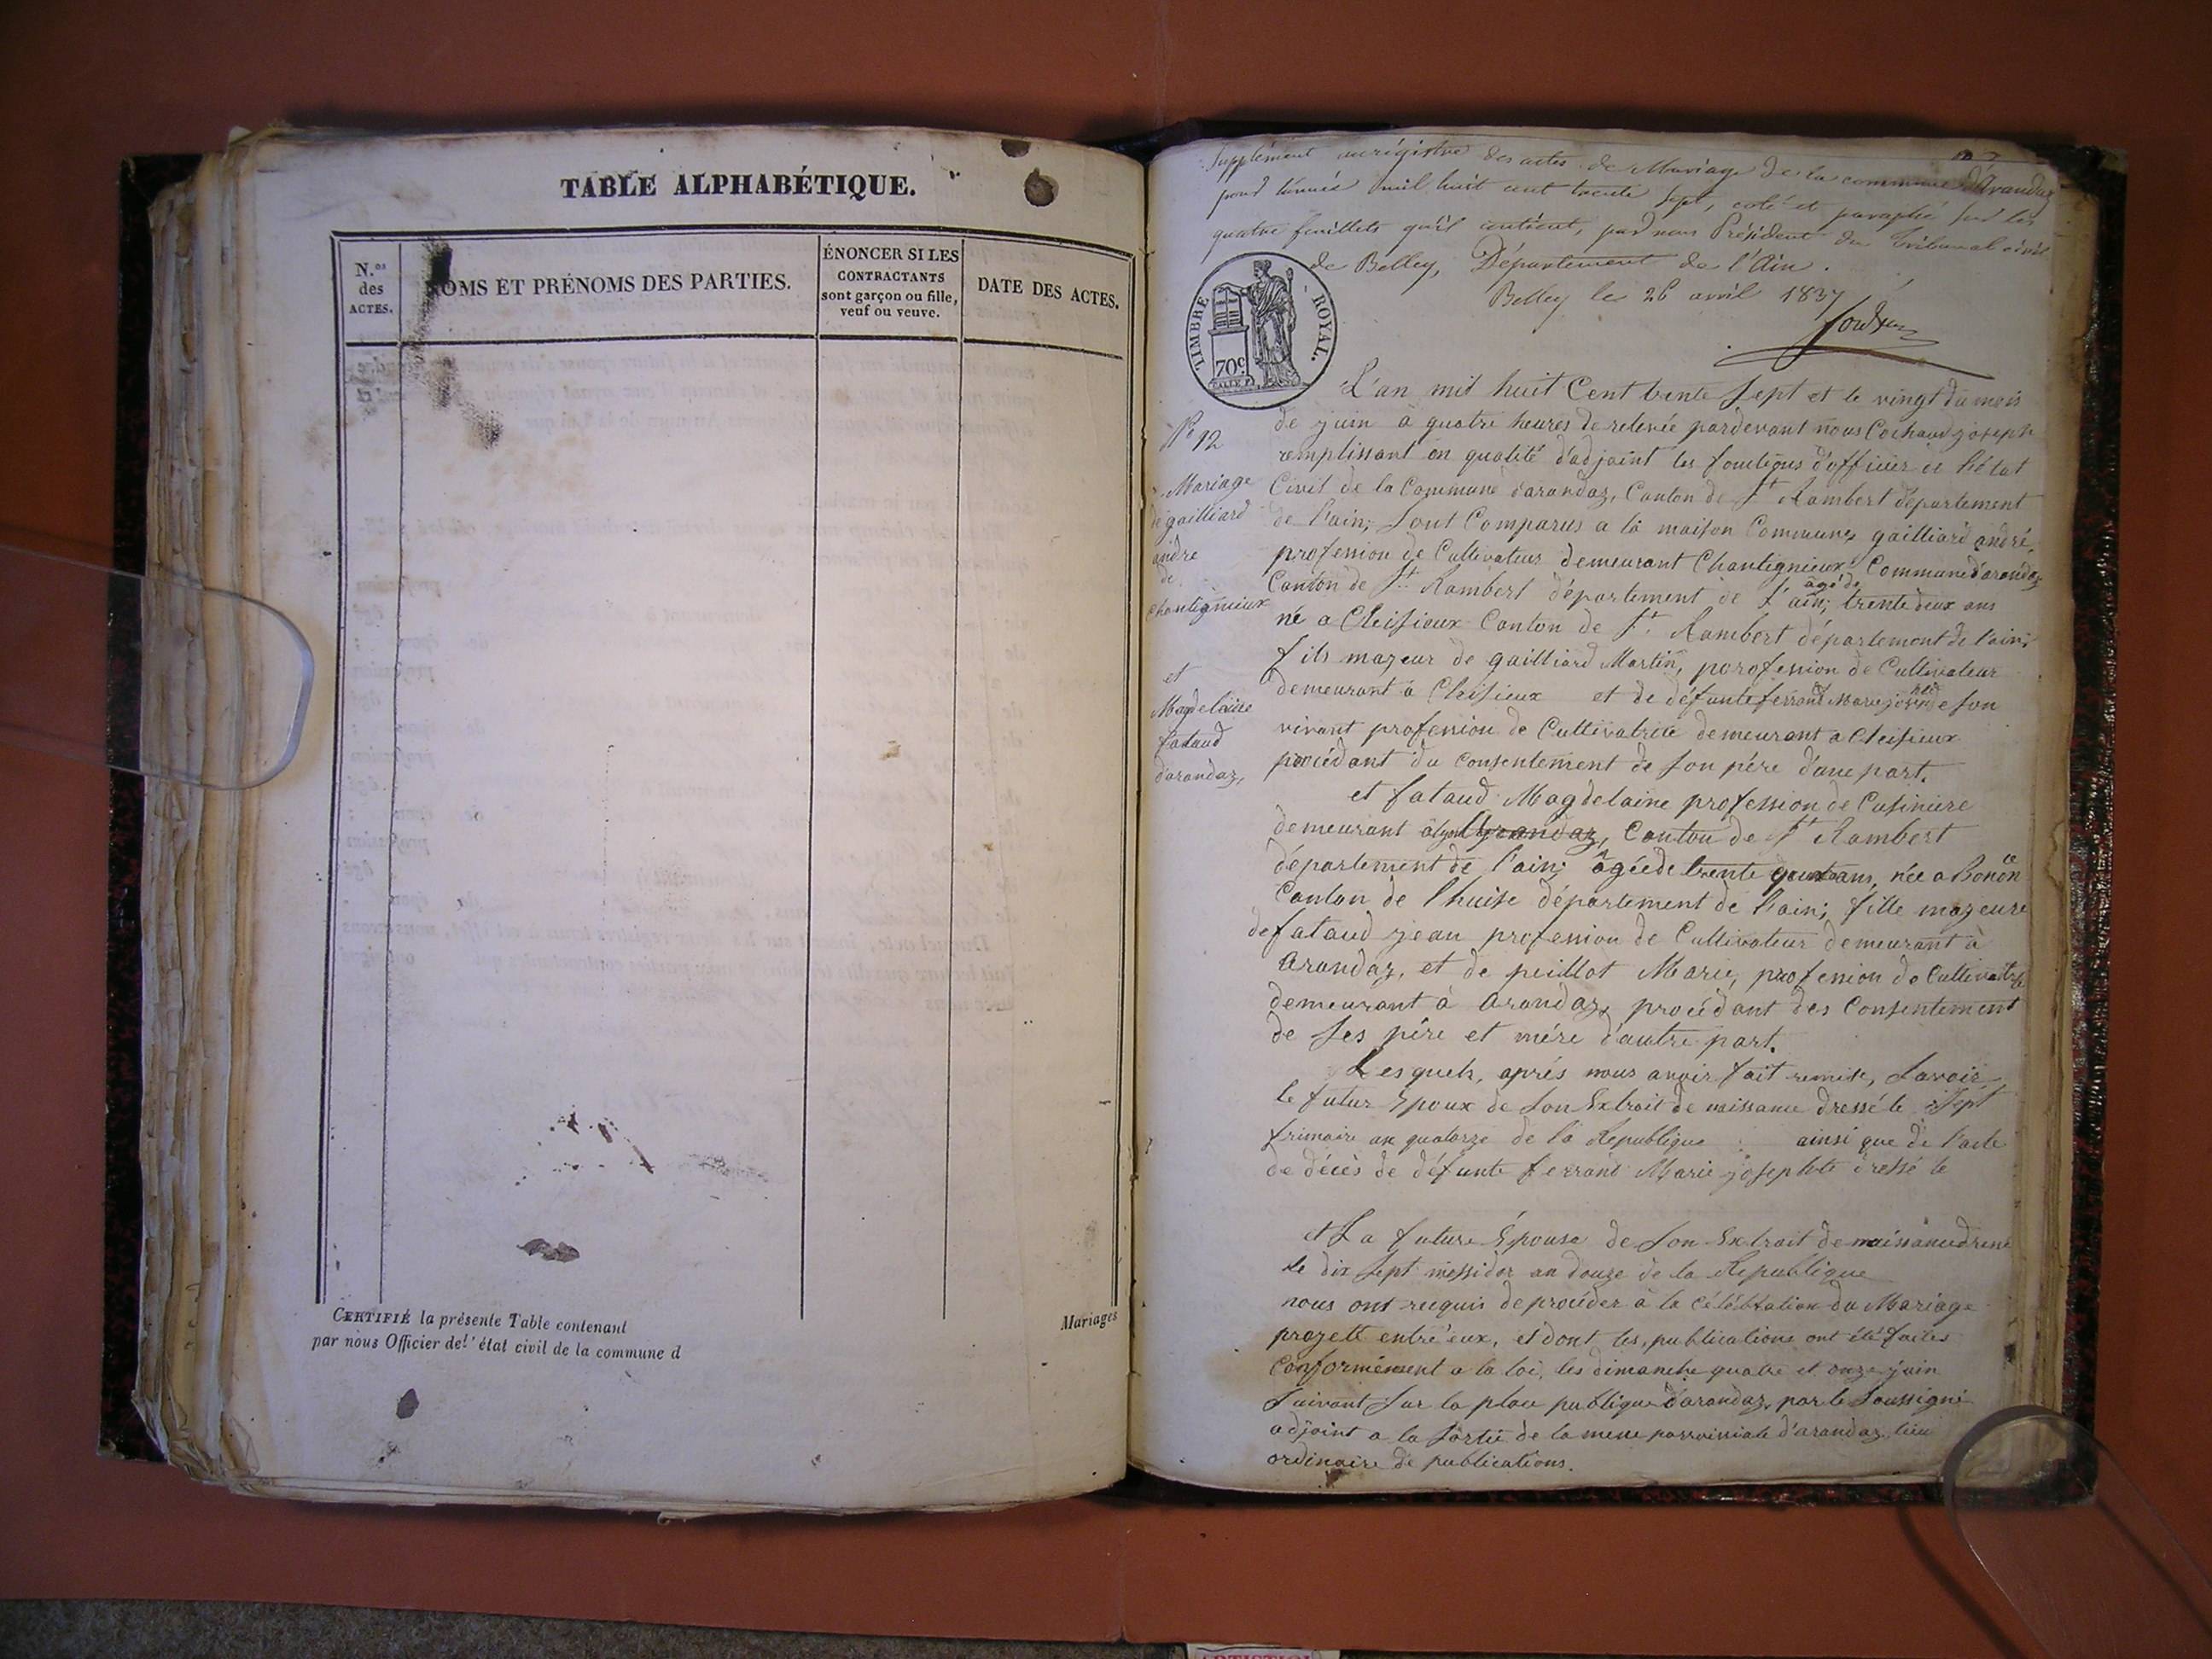 TABLE ALPHABÉTIQUE.
N.os des ACTES.
NOMS ET PRÉNOMS DES PARTIES.
ÉNONCER SI LES
CONTRACTANTS
sont garçon ou fille,
veuf ou veuve.
DATE DES ACTES.
CERTIFIÉ la présente Table contenant
par nous Officier de l'état civil de la commune d
Mariages
Supplément au régistre des actes de Mariage de la commune d'Arandaz
pour l'année mil huit cent trente sept, coté et paraphé sur les
quatre feuillets qu'il contient, par nous Président du Tribunal civil
de Belley, Département de l'Ain.
Belley le 26 avril 1837
TIMBRE ROYAL.
70c.
N° 12
Mariage
de gailliard
andre
de
Chantignieux
et
Magdelaine
fataud
d'arandaz,
L'an mil huit Cent trente Sept et le vingt du mois
de juin à quatre heures de relevée pardevant nous Cochaud joseph
remplissant en qualité d'adjoint les fonctions d'officier de l'état
Civil de la Commune d'arandaz, Canton de St Rambert département
de l'ain; Sont Comparus a la maison Commune, gailliard andré,
profession de Cultivateur demeurant Chantignieux Commune d'arandaz
Canton de St Rambert département de l'ain; âgé de trente deux ans
né a Cleisieux Canton de St Rambert département de l'ain;
fils majeur de gailliard Martin, porofession de Cultivateur
demeurant à Cleisieux et de défunte ferrand Marie josephte de son
vivant profession de Cultivatrice demeurant a Cleisieux
procédant du consentement de son père d'une part.
et fataud Magdelaine profession de Cusinière
demeurant à Arandaz, Canton de St Rambert
département de l'ain; âgée de trente ans, née a Bonôn
Canton de l'huise département de l'ain; fille majeure
de fataud jean profession de Cultivateur demeurant à
Arandaz, et de peillot Marie, profession de Cultivatrice
demeurant à Arandaz, procédant des Consentement
de Ses père et mère d'autre part.
Lesquels, après nous avoir fait remise, Savoir
le futur Epoux de Son Extrait de naissance dressé le Sept
frimaire an quatorze de la Republique ainsi que de l'acte
de décès de défunte ferrand Marie josephte dressé le
et La future Épouse de Son Extrait de naissance dressé
le dix Sept messidor an douze de la Republique
nous ont requis de procéder à la célébration du Mariage
projetté entre'eux, et dont les publications ont été faites
Conformément a la loi, les dimanche quatre et onze juin
Suivant Sur la place publique d'arandaz, par le Soussigné
adjoint a la Sortie de la messe parroissiale d'arandaz lieu
ordinaire de publications.